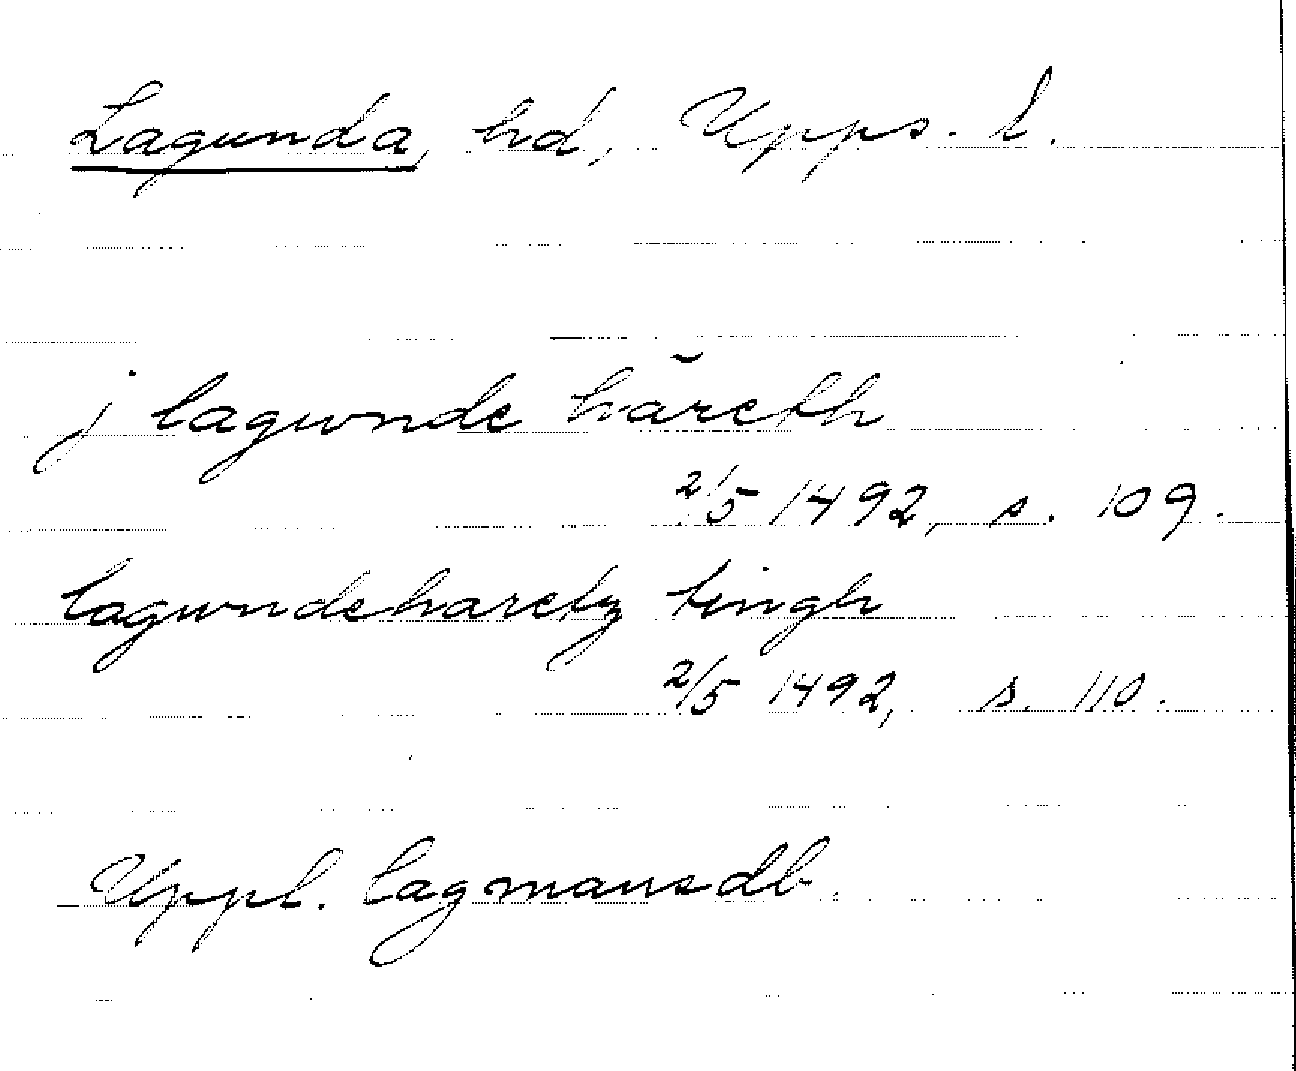 Lagunda, hd, Upps. l.
j lagwnde häreth
2/5 1492, s. 109.
lagwndeharetz tingh
2/5 1492, s. 110.
Uppl. lagmansdb.